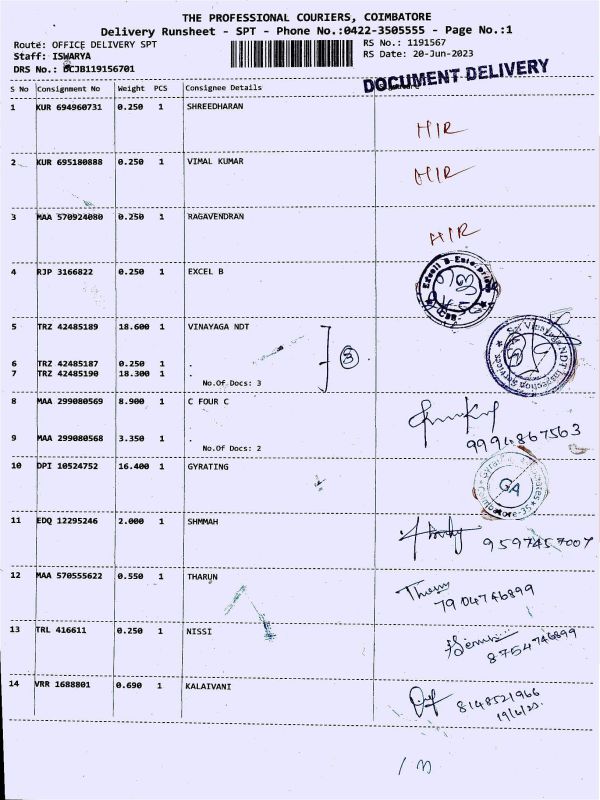 THE PROFESSIONAL COURIERS, COIMBATORE
Delivery Runsheet - SPT - Phone No.:0422-3505555 - Page No.:1
Route: OFFICE DELIVERY SPT
RS No.: 1191567
Staff: ISWARYA
RS Date: 20-Jun-2023
DRS No.: CJB119156701
DOCUMENT DELIVERY
S No Consignment No Weight PCS Consignee Details
1 KUR 694960731 0.250 1 SHREEDHARAN
HIR
2 KUR 695180888 0.250 1 VIMAL KUMAR
HIR
3 MAA 570924080 0.250 1 RAGAVENDRAN
HIR
4 RJP 3166822 0.250 1 EXCEL B
5 TRZ 42485189 18.600 1 VINAYAGA NDT
6 TRZ 42485187 0.250 1 .
3
7 TRZ 42485190 18.300 1 .
No.Of Docs: 3
8 MAA 299080569 8.900 1 C FOUR C
9994867563
9 MAA 299080568 3.350 1 .
No.Of Docs: 2
10 DPI 10524752 16.400 1 GYRATING
GA
11 EDQ 12295246 2.000 1 SHMMAH
9597457007
12 MAA 570555622 0.550 1 THARUN
7904746899
13 TRL 416611 0.250 1 NISSI
8754746899
14 VRR 1688801 0.690 1 KALAIVANI
8148521966
19/6/23.